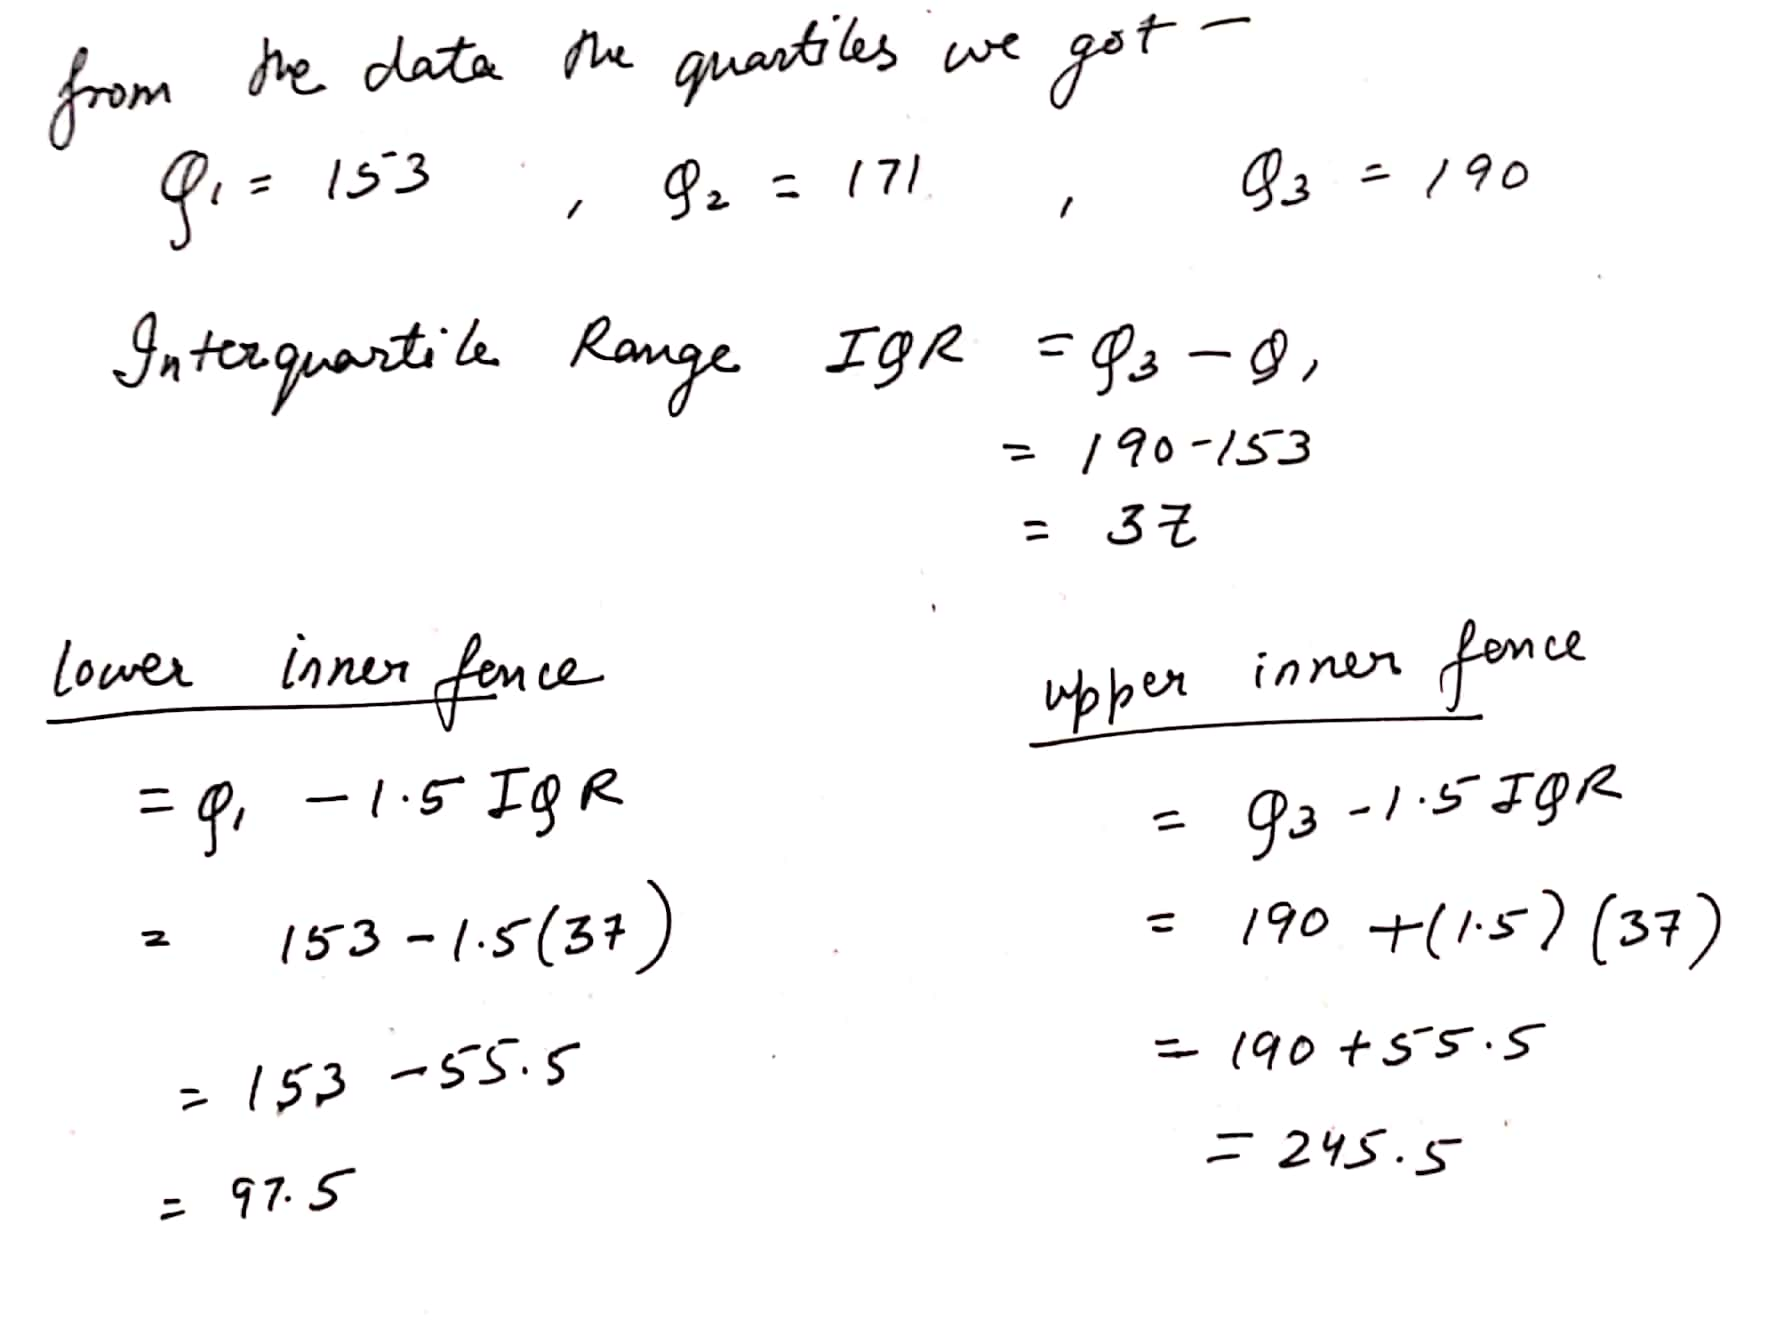 from the data the quartiles we got –
Q1 = 153 , Q2 = 171 , Q3 = 190
Interquartile Range IQR = Q3 – Q1
= 190 - 153
= 37
lower inner fence
= Q1 – 1.5 IQR
= 153 – 1.5(37)
= 153 – 55.5
= 97.5
upper inner fence
= Q3 - 1.5 IQR
= 190 + (1.5) (37)
= 190 + 55.5
= 245.5